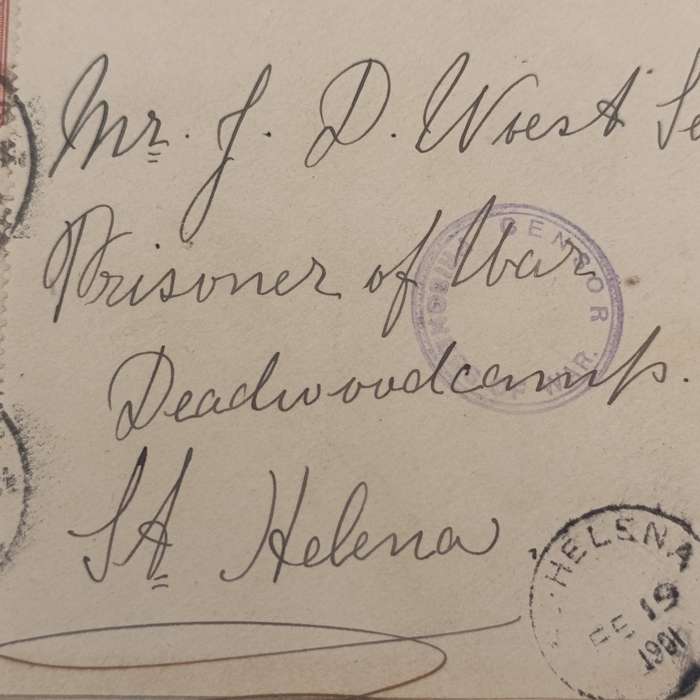 Mr. J. D. Woest Se
Prisoner of War
Deadwoodcamp.
St Helena
CENSOR
OF WAR.
HELENA
FE 19
1901